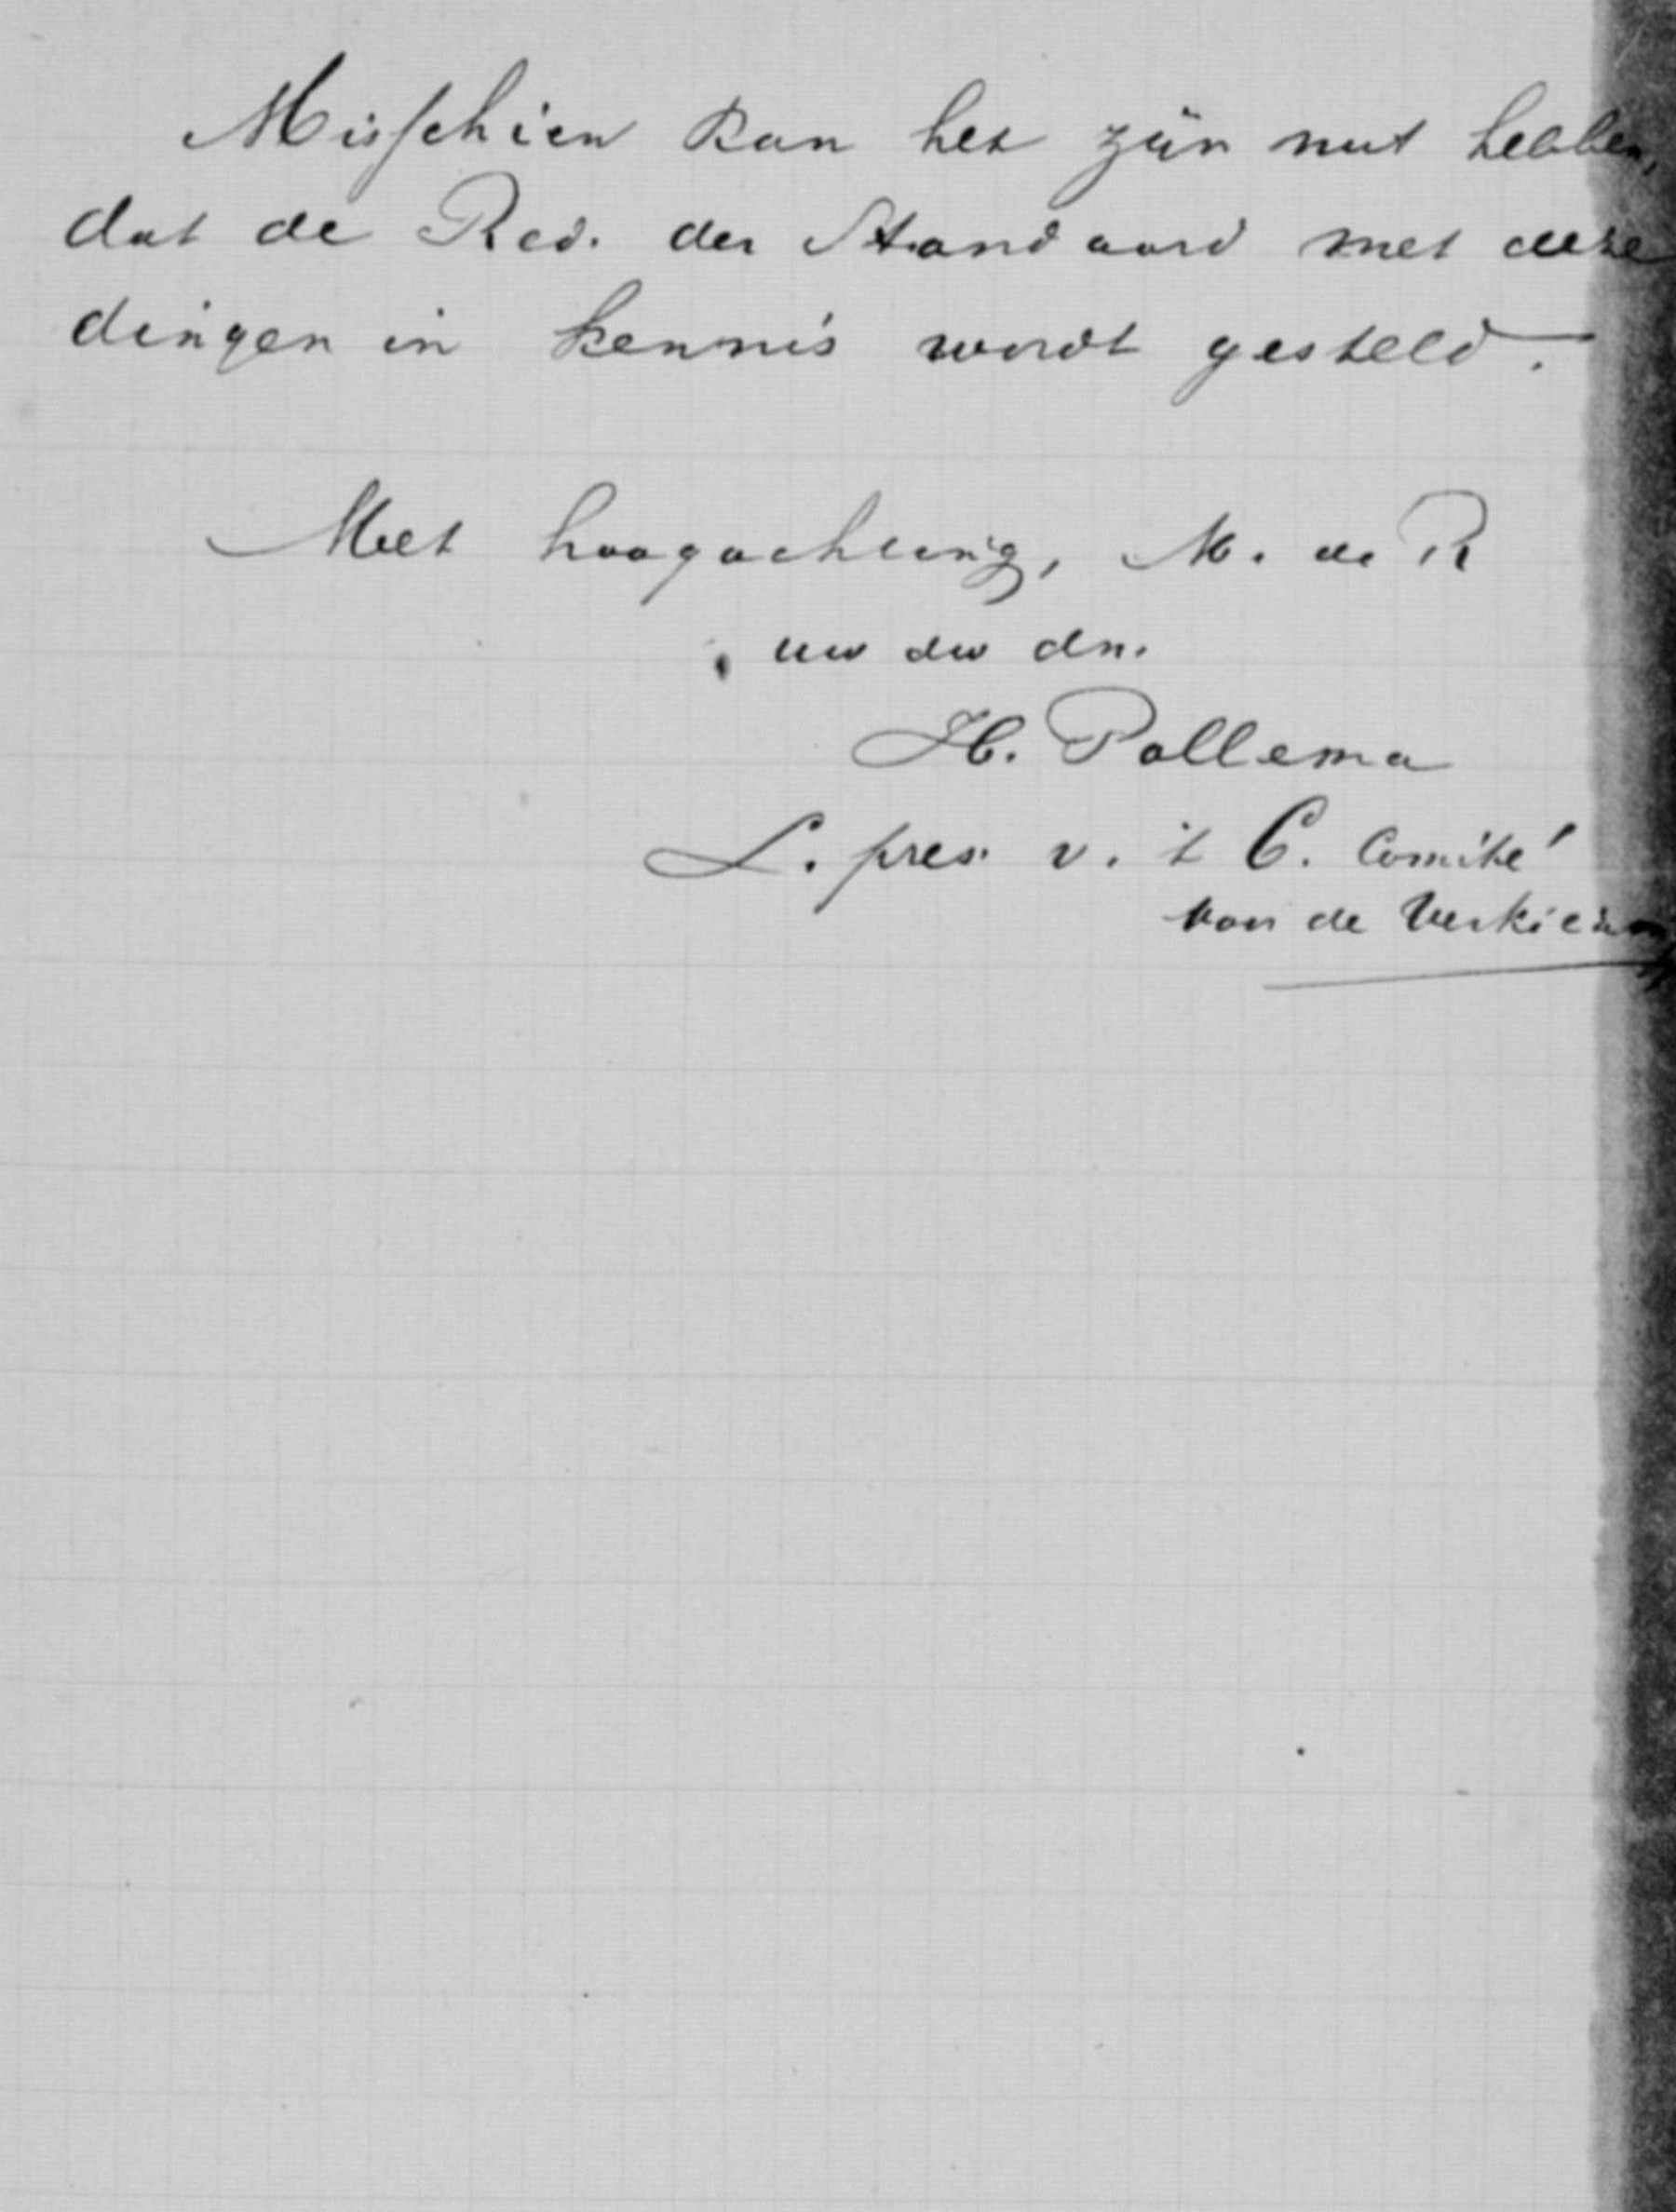 Misschien kan het zijn nut hebben,
dat de Red. der Standaard met deze
dingen in kennis wordt gesteld.
Met hoogachting, M. de R
uw dw dn.
H. Pollema
L. pres. v. 't C. Comité
van de